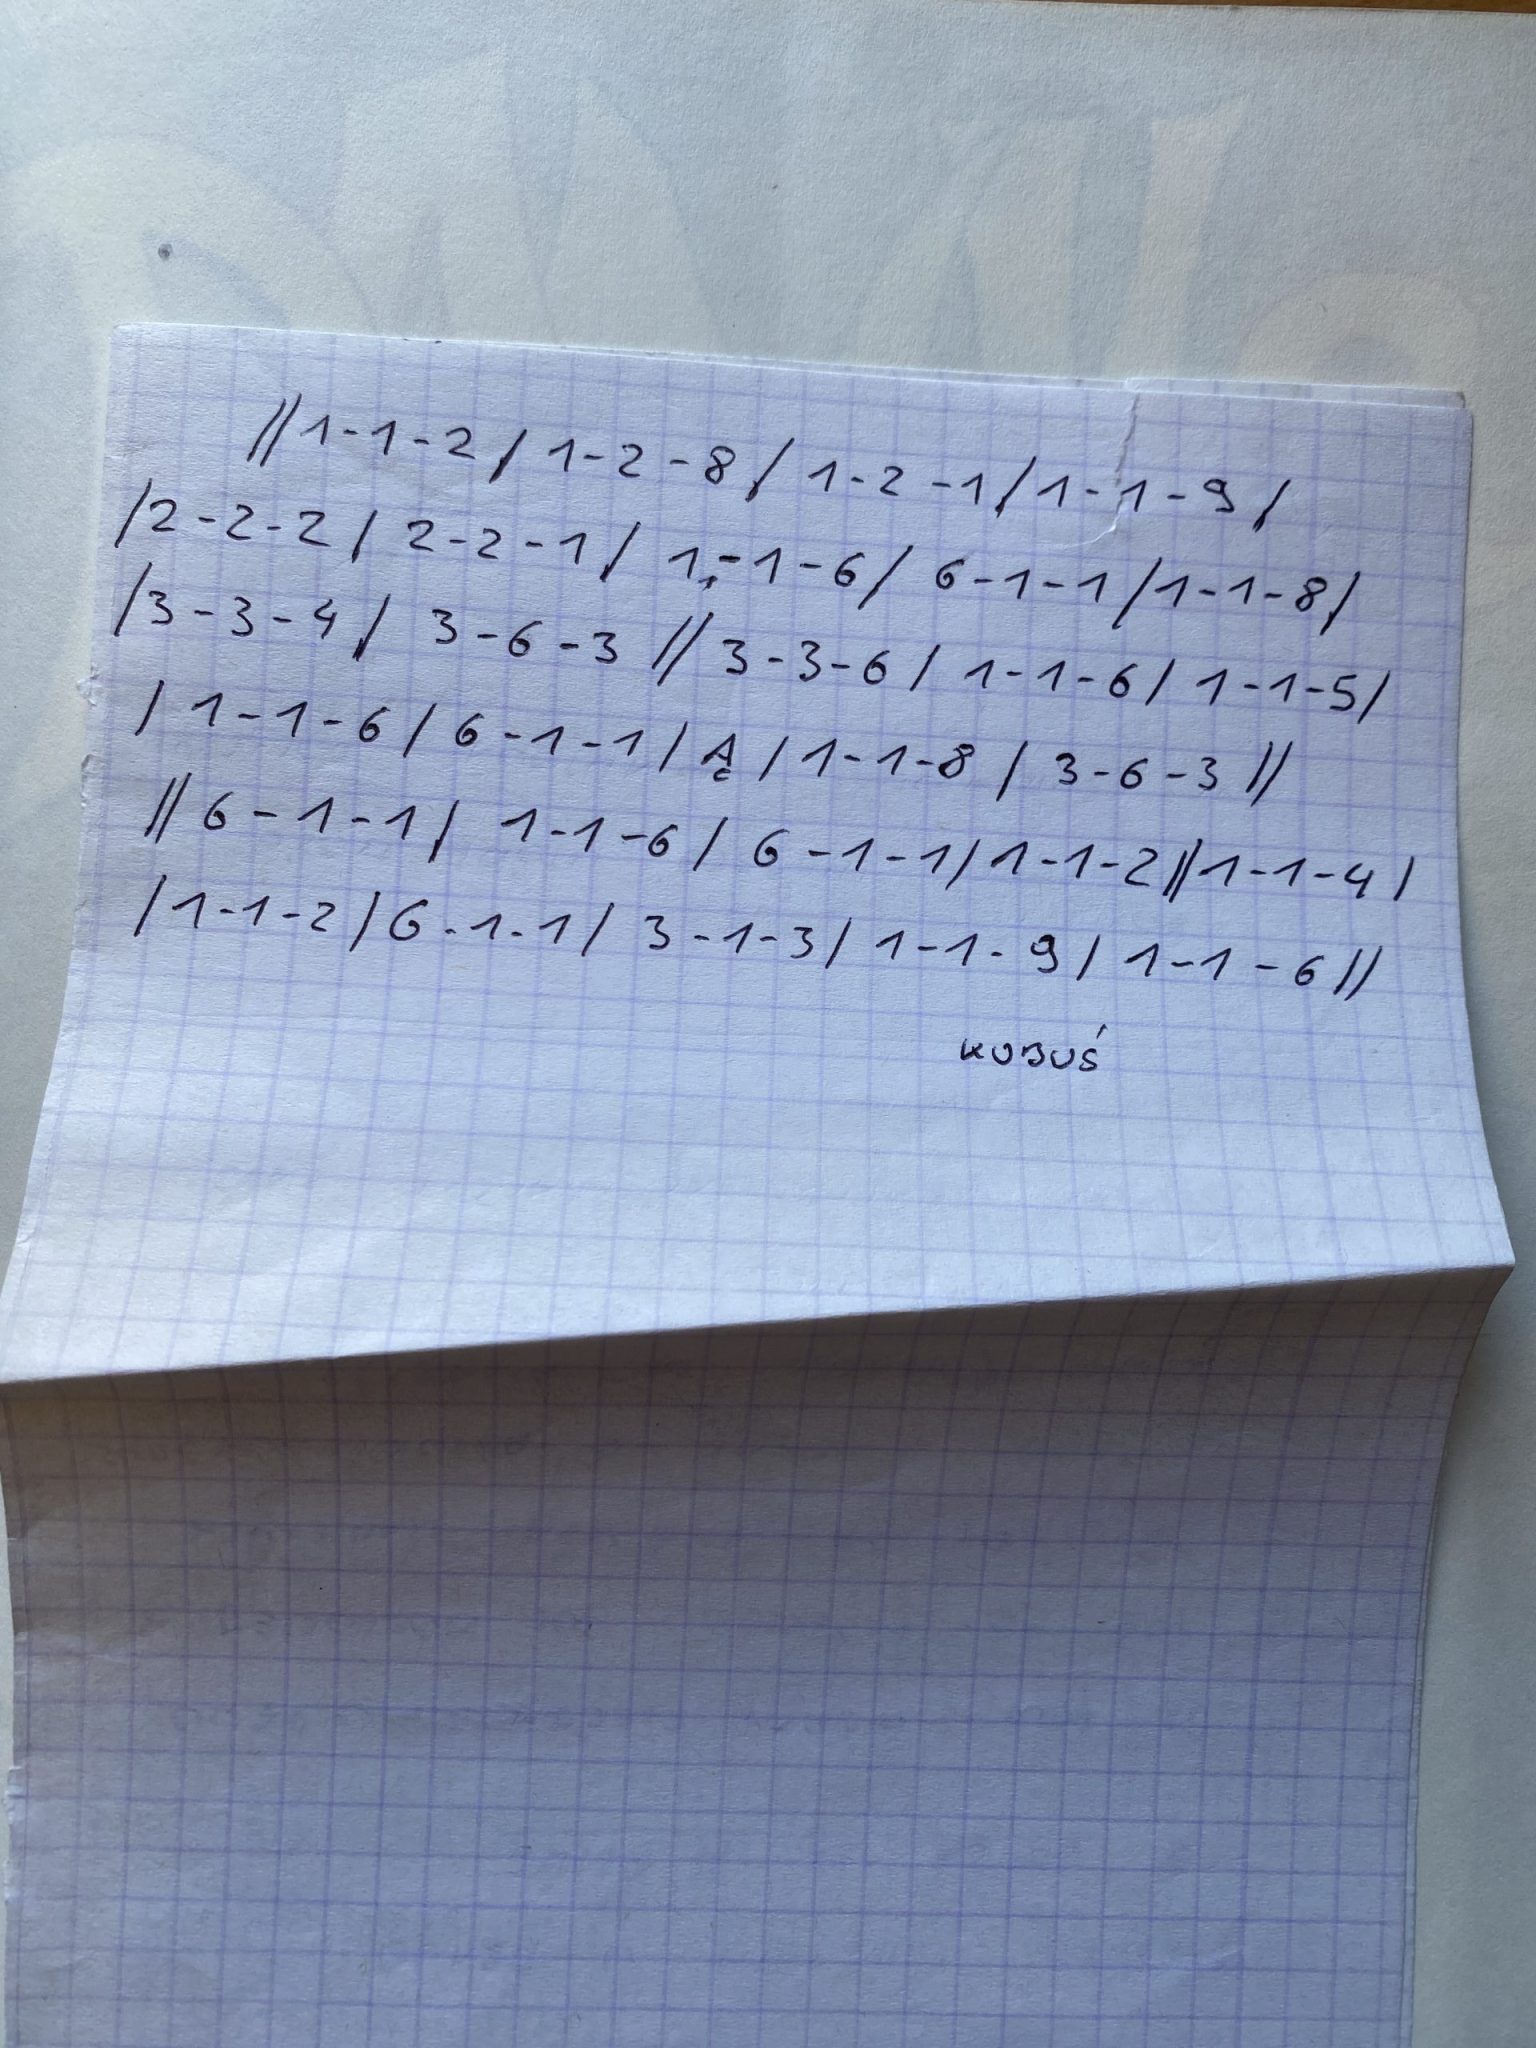 //1-1-2/ 1-2-8/ 1-2-1/1-1-9/
/2-2-2/ 2-2-1/ 1-1-6/ 6-1-1/1-1-8/
/3-3-4/ 3-6-3 // 3-3-6/ 1-1-6/ 1-1-5/
/ 1-1-6/ 6-1-1/ Ą / 1-1-8 / 3-6-3 //
// 6-1-1/ 1-1-6/ 6-1-1/1-1-2//1-1-4/
/1-1-2/6-1-1/ 3-1-3/ 1-1-9/ 1-1-6//
KUBUŚ